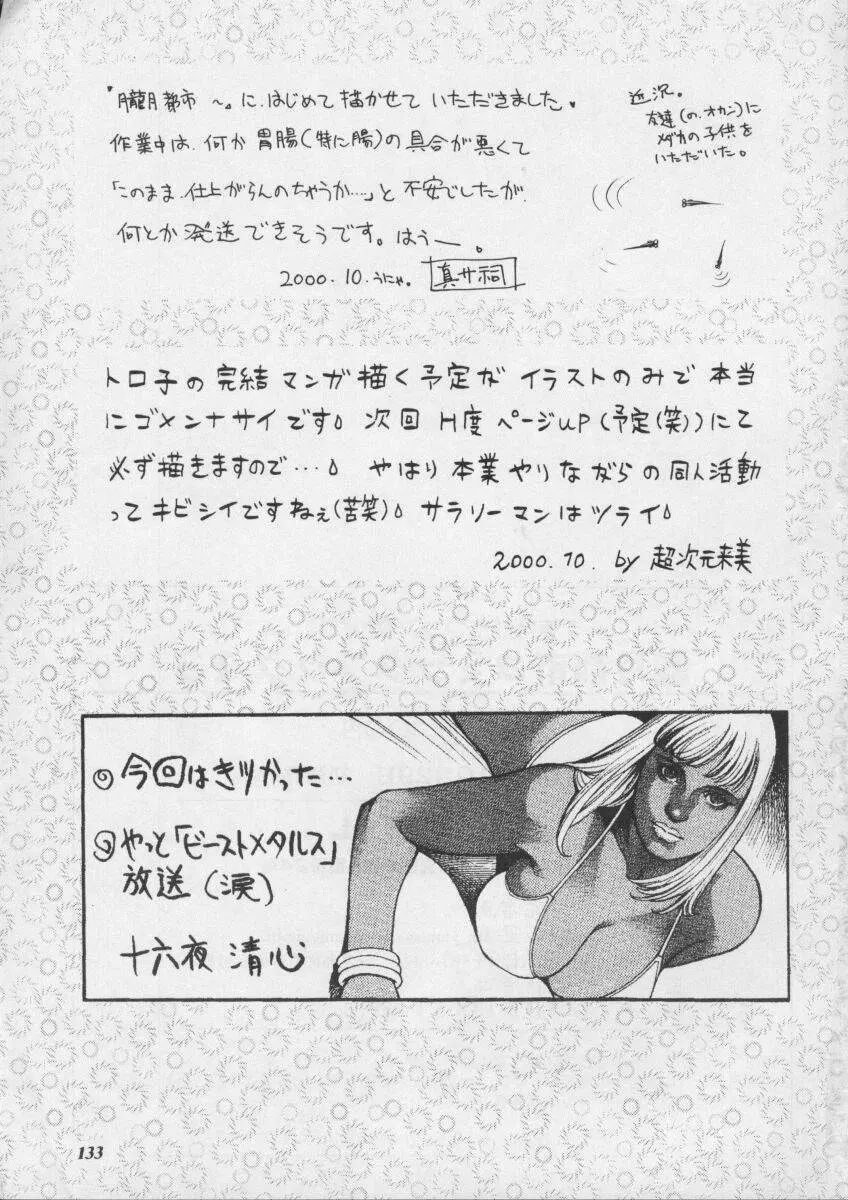 『朧月都市 ~』に、はじめて描かせていただきました。
作業中は、何か胃腸(特に腸)の具合が悪くて
「このまま、仕上がらんのちゃうか…」と不安でしたが、
何とか発送できそうです。はうー。
2000.10.うにゃ。 真サ祠
近況。
友達(の、オカン)に
メダカの子供を
いただいた。
トロ子の完結マンガ描く予定が イラストのみで本当
にゴメンナサイです。次回 H度 ページUP(予定(笑))にて
必ず描きますので…。やはり本業やりながらの同人活動
ってキビシイですねぇ(苦笑)。サラリーマンはツライ。
2000.10. by 超次元来美
◎今回はきつかった…
◎やっと「ビーストメタルス」
放送(涙)
十六夜 清心
133